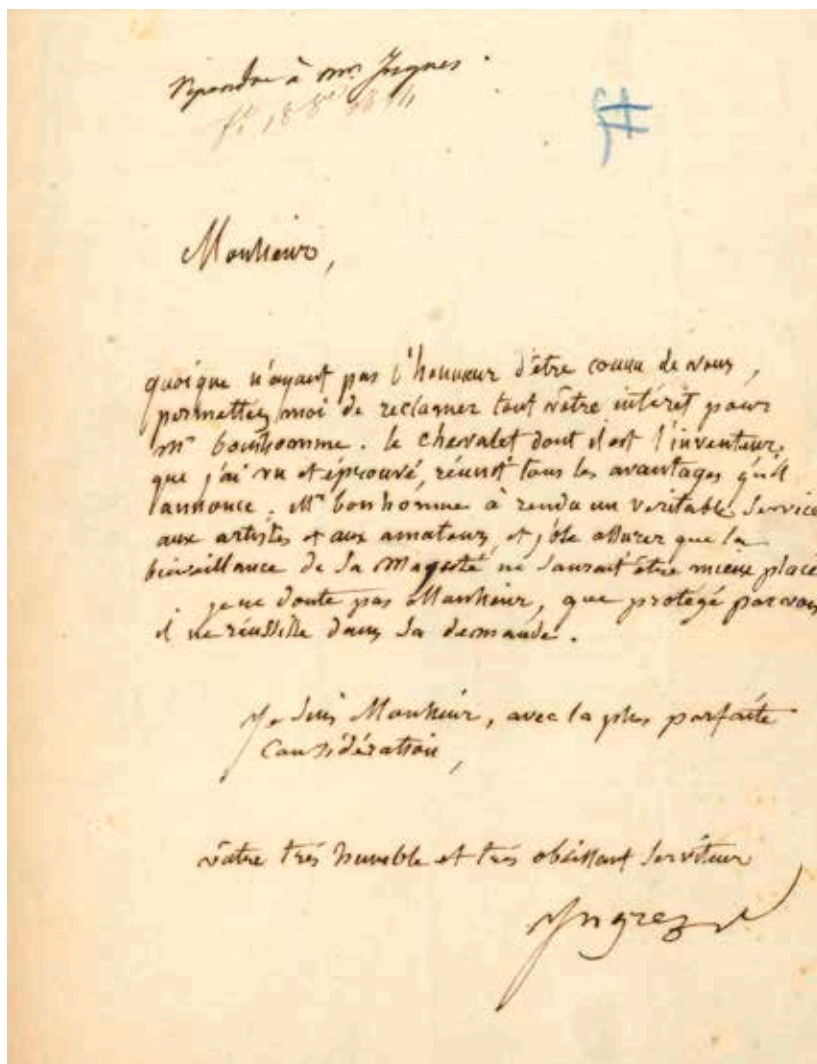 repondre à mr. Ingres.
Monsieur,
quoique n'ayant pas l'honneur d'être connu de vous,
permettez moi de reclamer tout vôtre intérêt pour
mr bonhomme. le chevalet dont il est l'inventeur,
que j'ai vu et éprouvé, réunit tous les avantages qu'il
annonce. Mr bonhomme à rendu un veritable service
aux artistes et aux amateurs, et j'ose assurer que la
bienveillance de sa Majesté ne saurait être mieux placé
je ne doute pas Monsieur, que protegé par vous
il ne réussisse dans sa demande.
Je suis Monsieur, avec la plus parfaite
Considération,
vôtre très humble et très obéissant serviteur
Ingres